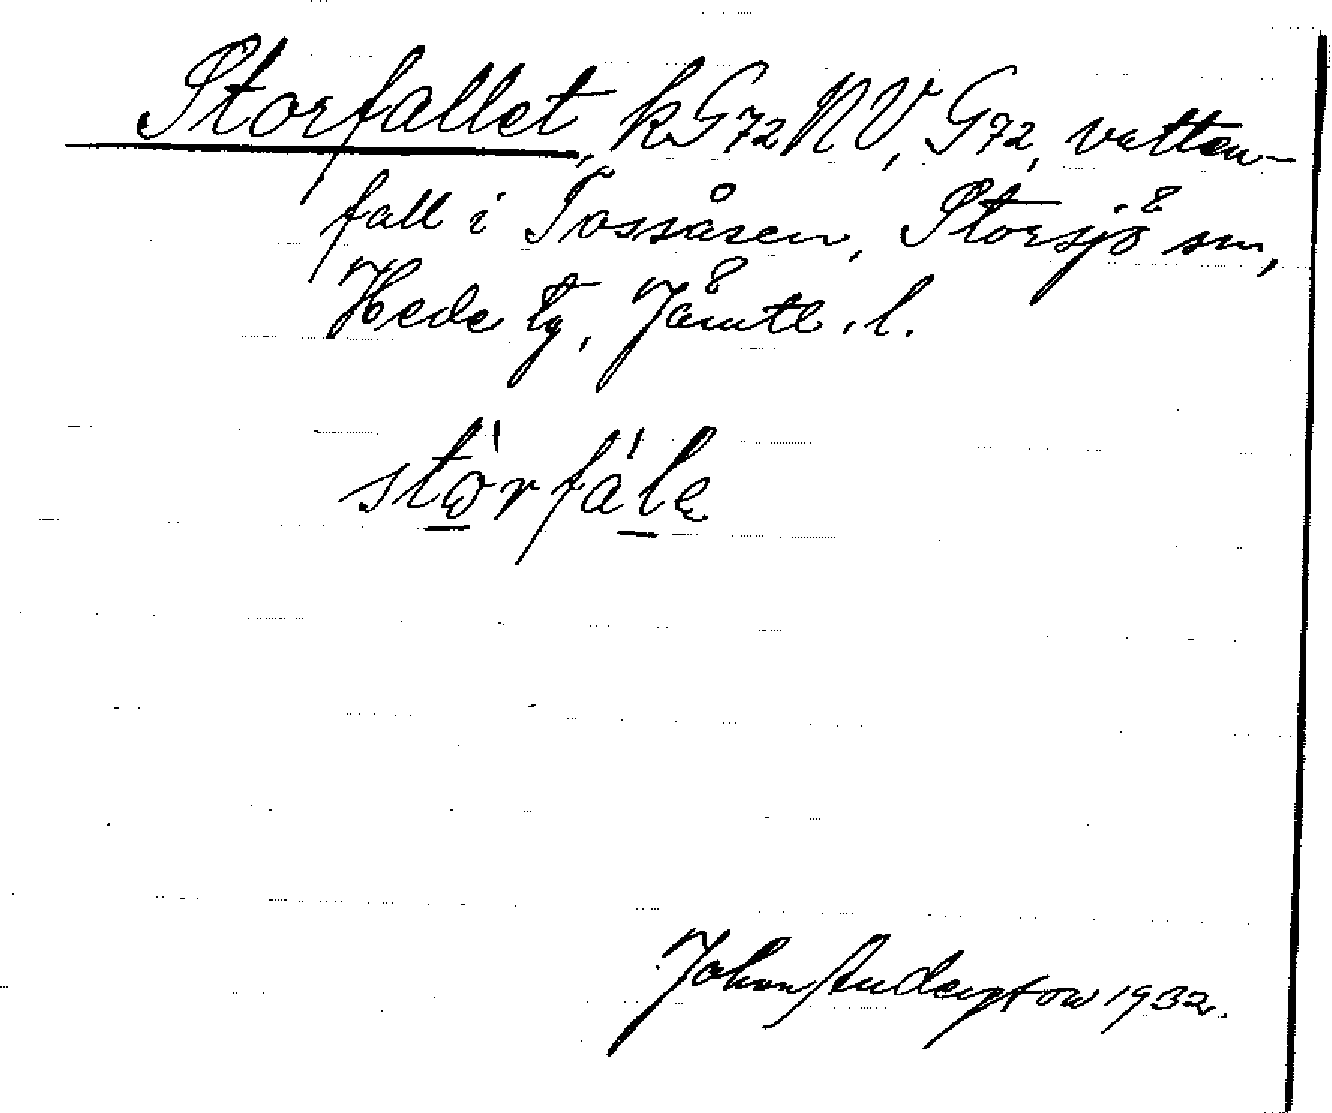 Storfallet, kG72NV, G72, vatten-
fall i Tossåsen, Storsjö sn,
Hede tg, Jämtl. l.
stórfálę
Johan Andersson 1932.